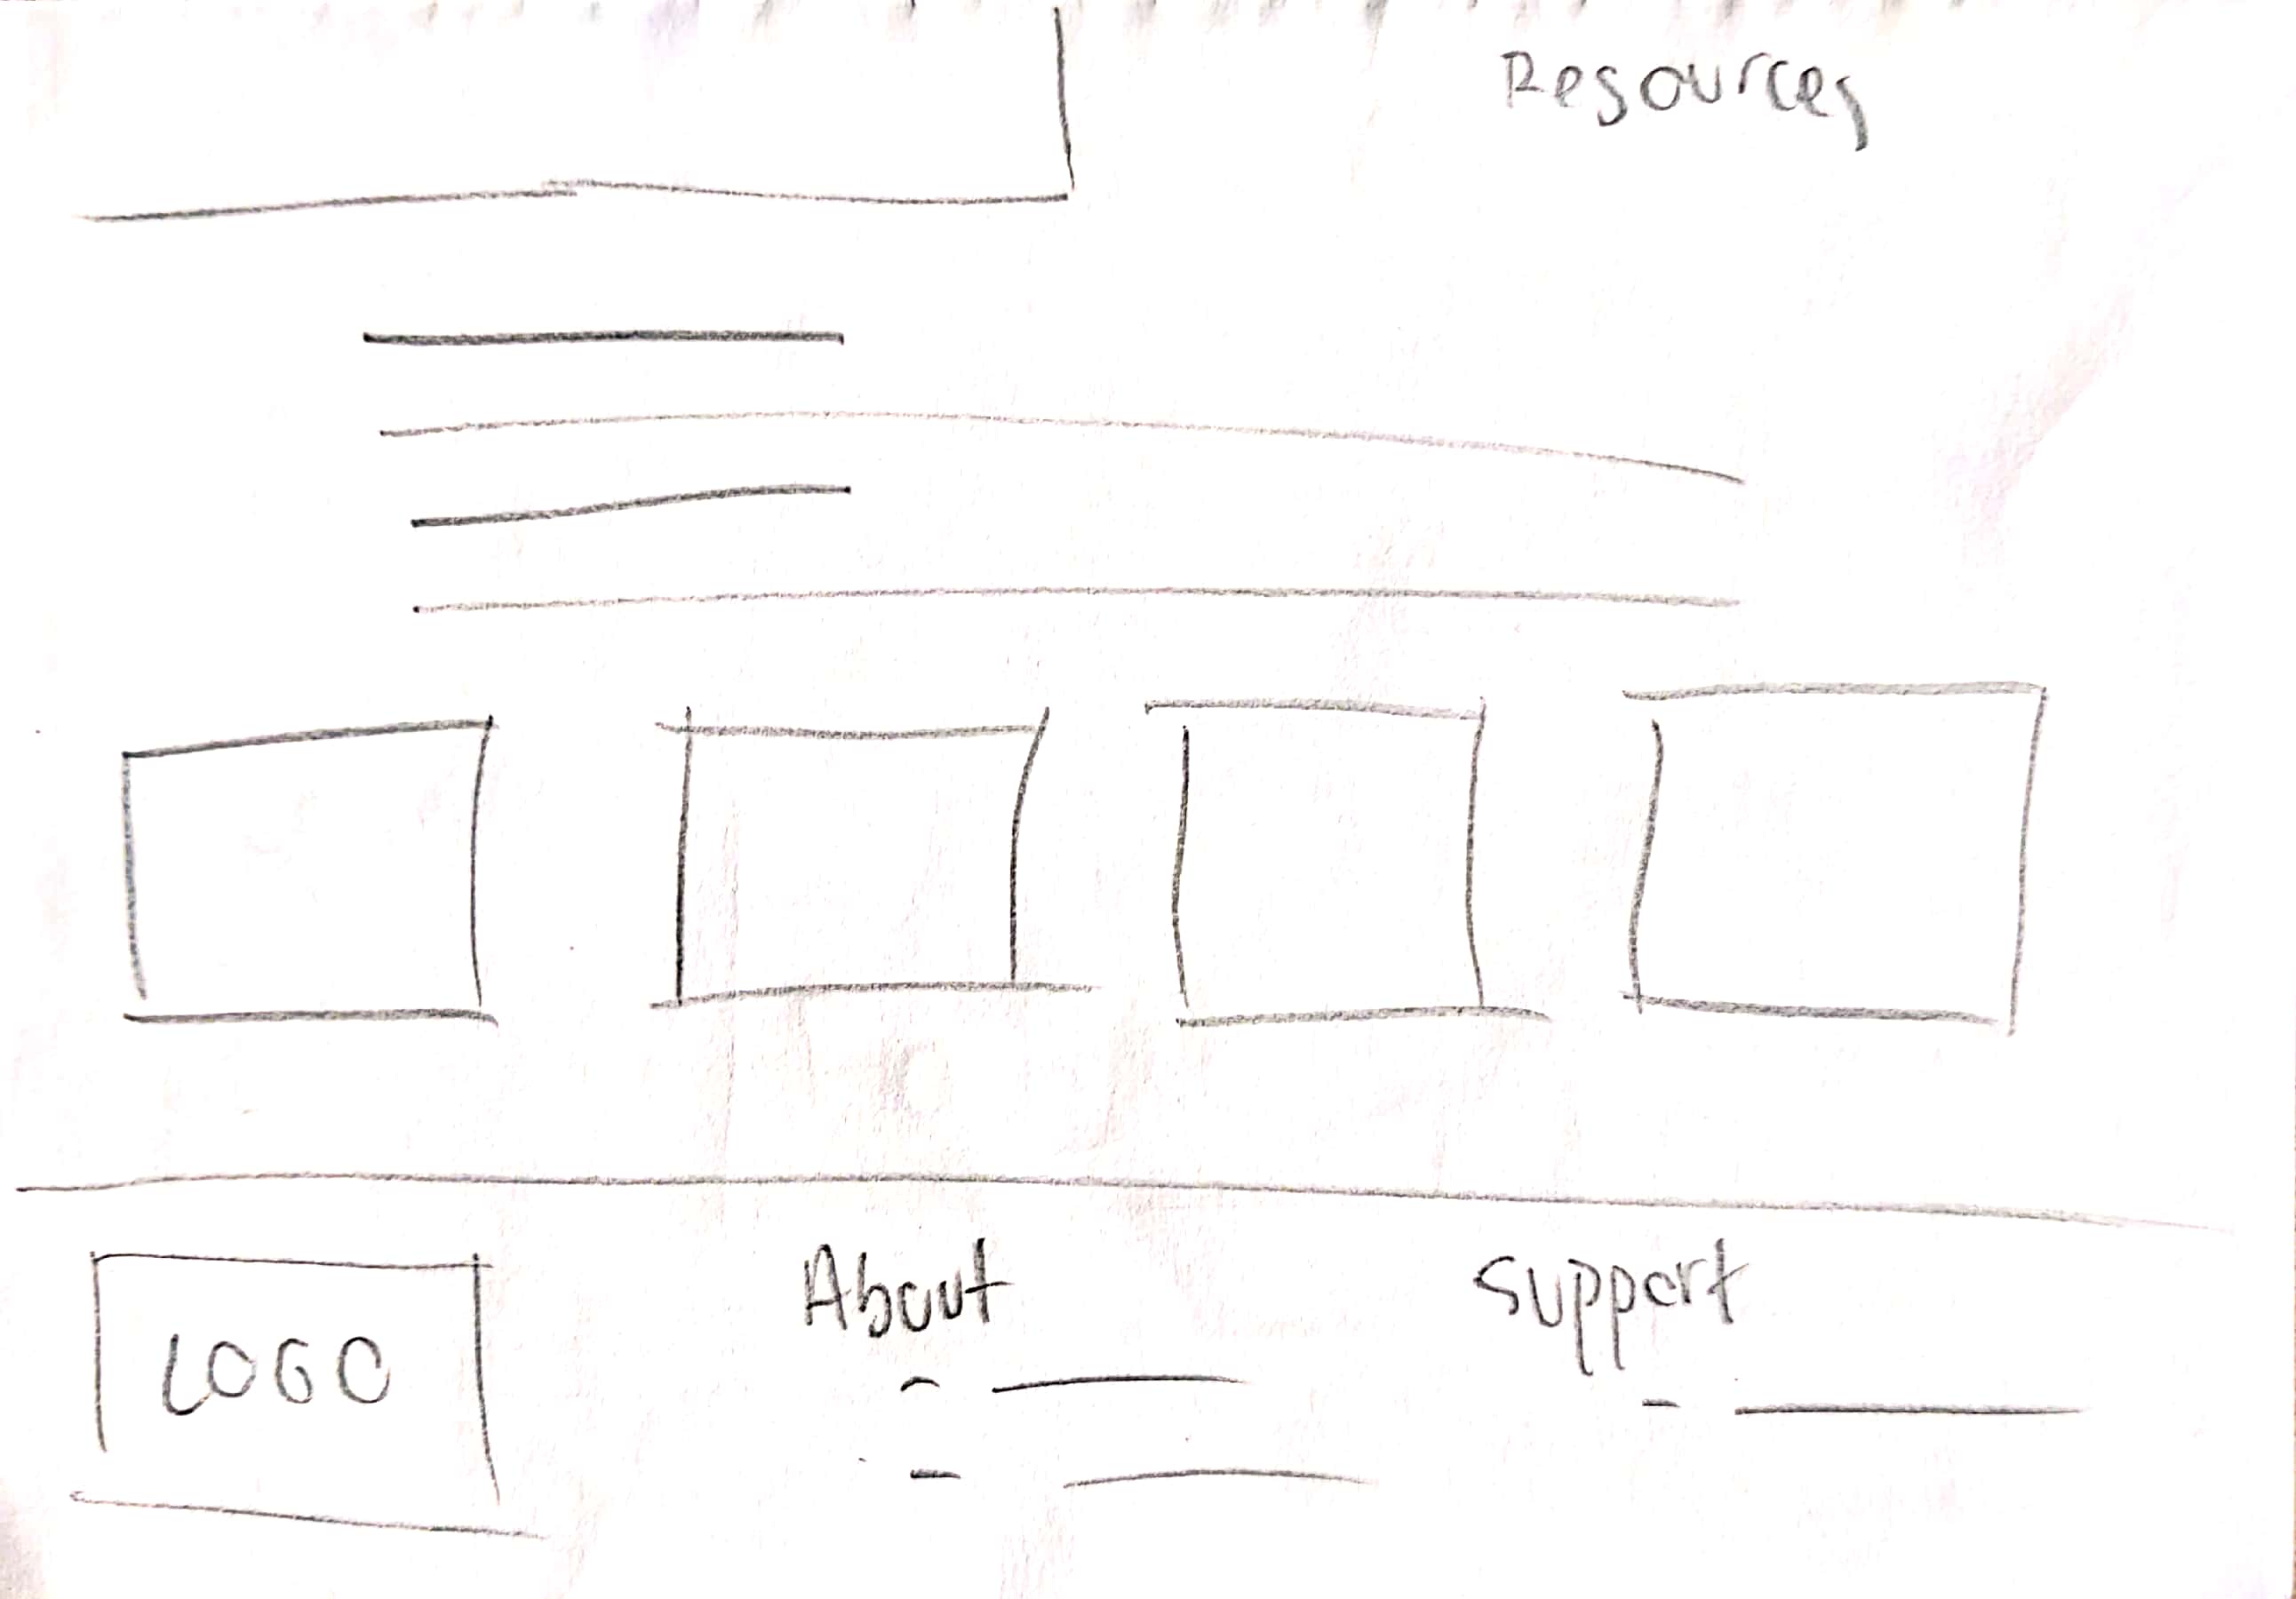 Resources
LOGO
About
Support